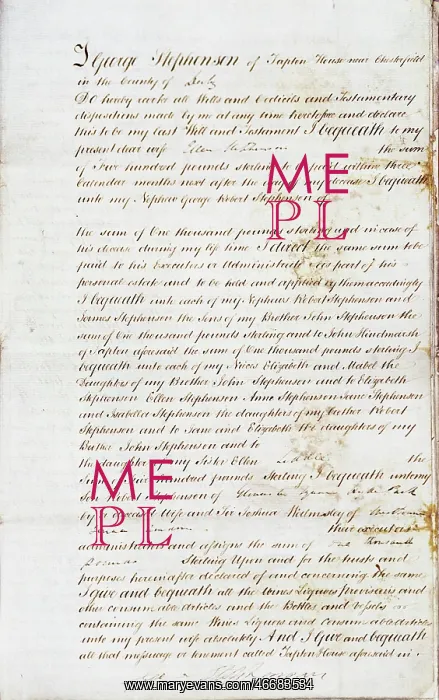 I George Stephenson of Tapton House near Chesterfield
in the County of Derby
Do hereby revoke all Wills and Codicils and Testamentary
dispositions made by me at any time heretofore and declare
this to be my last Will and Testament I bequeath to my
present dear wife Ellen Stephenson the sum
of Five hundred pounds sterling to be paid within three
Calendar months next after the my decease I bequeath
unto my Nephew George Robert Stephenson of
ME
PL
the sum of One thousand pounds sterling and in case of
his decease during my life time I direct the same sum to be
paid to his Executors or Administrators as part of his
personal estate and to be held and applied by them accordingly
I bequeath unto each of my Nephews Robert Stephenson and
James Stephenson the Sons of my Brother John Stephenson the
sum of One thousand pounds sterling and to John Hindmarsh
of Tapton aforesaid the sum of One thousand pounds sterling I
bequeath unto each of my Nieces Elizabeth and Mabel the
Daughters of my Brother John Stephenson and to Elizabeth
Stephenson Ellen Stephenson Anne Stephenson Jane Stephenson
and Isabella Stephenson the daughters of my Brother Robert
Stephenson and to Jane and Elizabeth the daughters of my
Brother John Stephenson and to
the daughter of my Sister Ellen the
hundred pounds Sterling I bequeath unto my
ME
Son Robert Stephenson of Gloucester Square Hyde Park
by Wife and Sir Joshua Walmsley of
PL
their executors
administrators and assigns the sum of thousand
pounds Sterling Upon and for the trusts and
purposes hereinafter declared of and concerning the same
I give and bequeath all the Wines Liquors provisions and
other consumable articles and the Bottles and vessels
containing the same Wines Liquors and consumable articles
unto my present wife absolutely And I Give and bequeath
all that messuage or tenement called Tapton House aforesaid in
www.maryevans.com/46689534